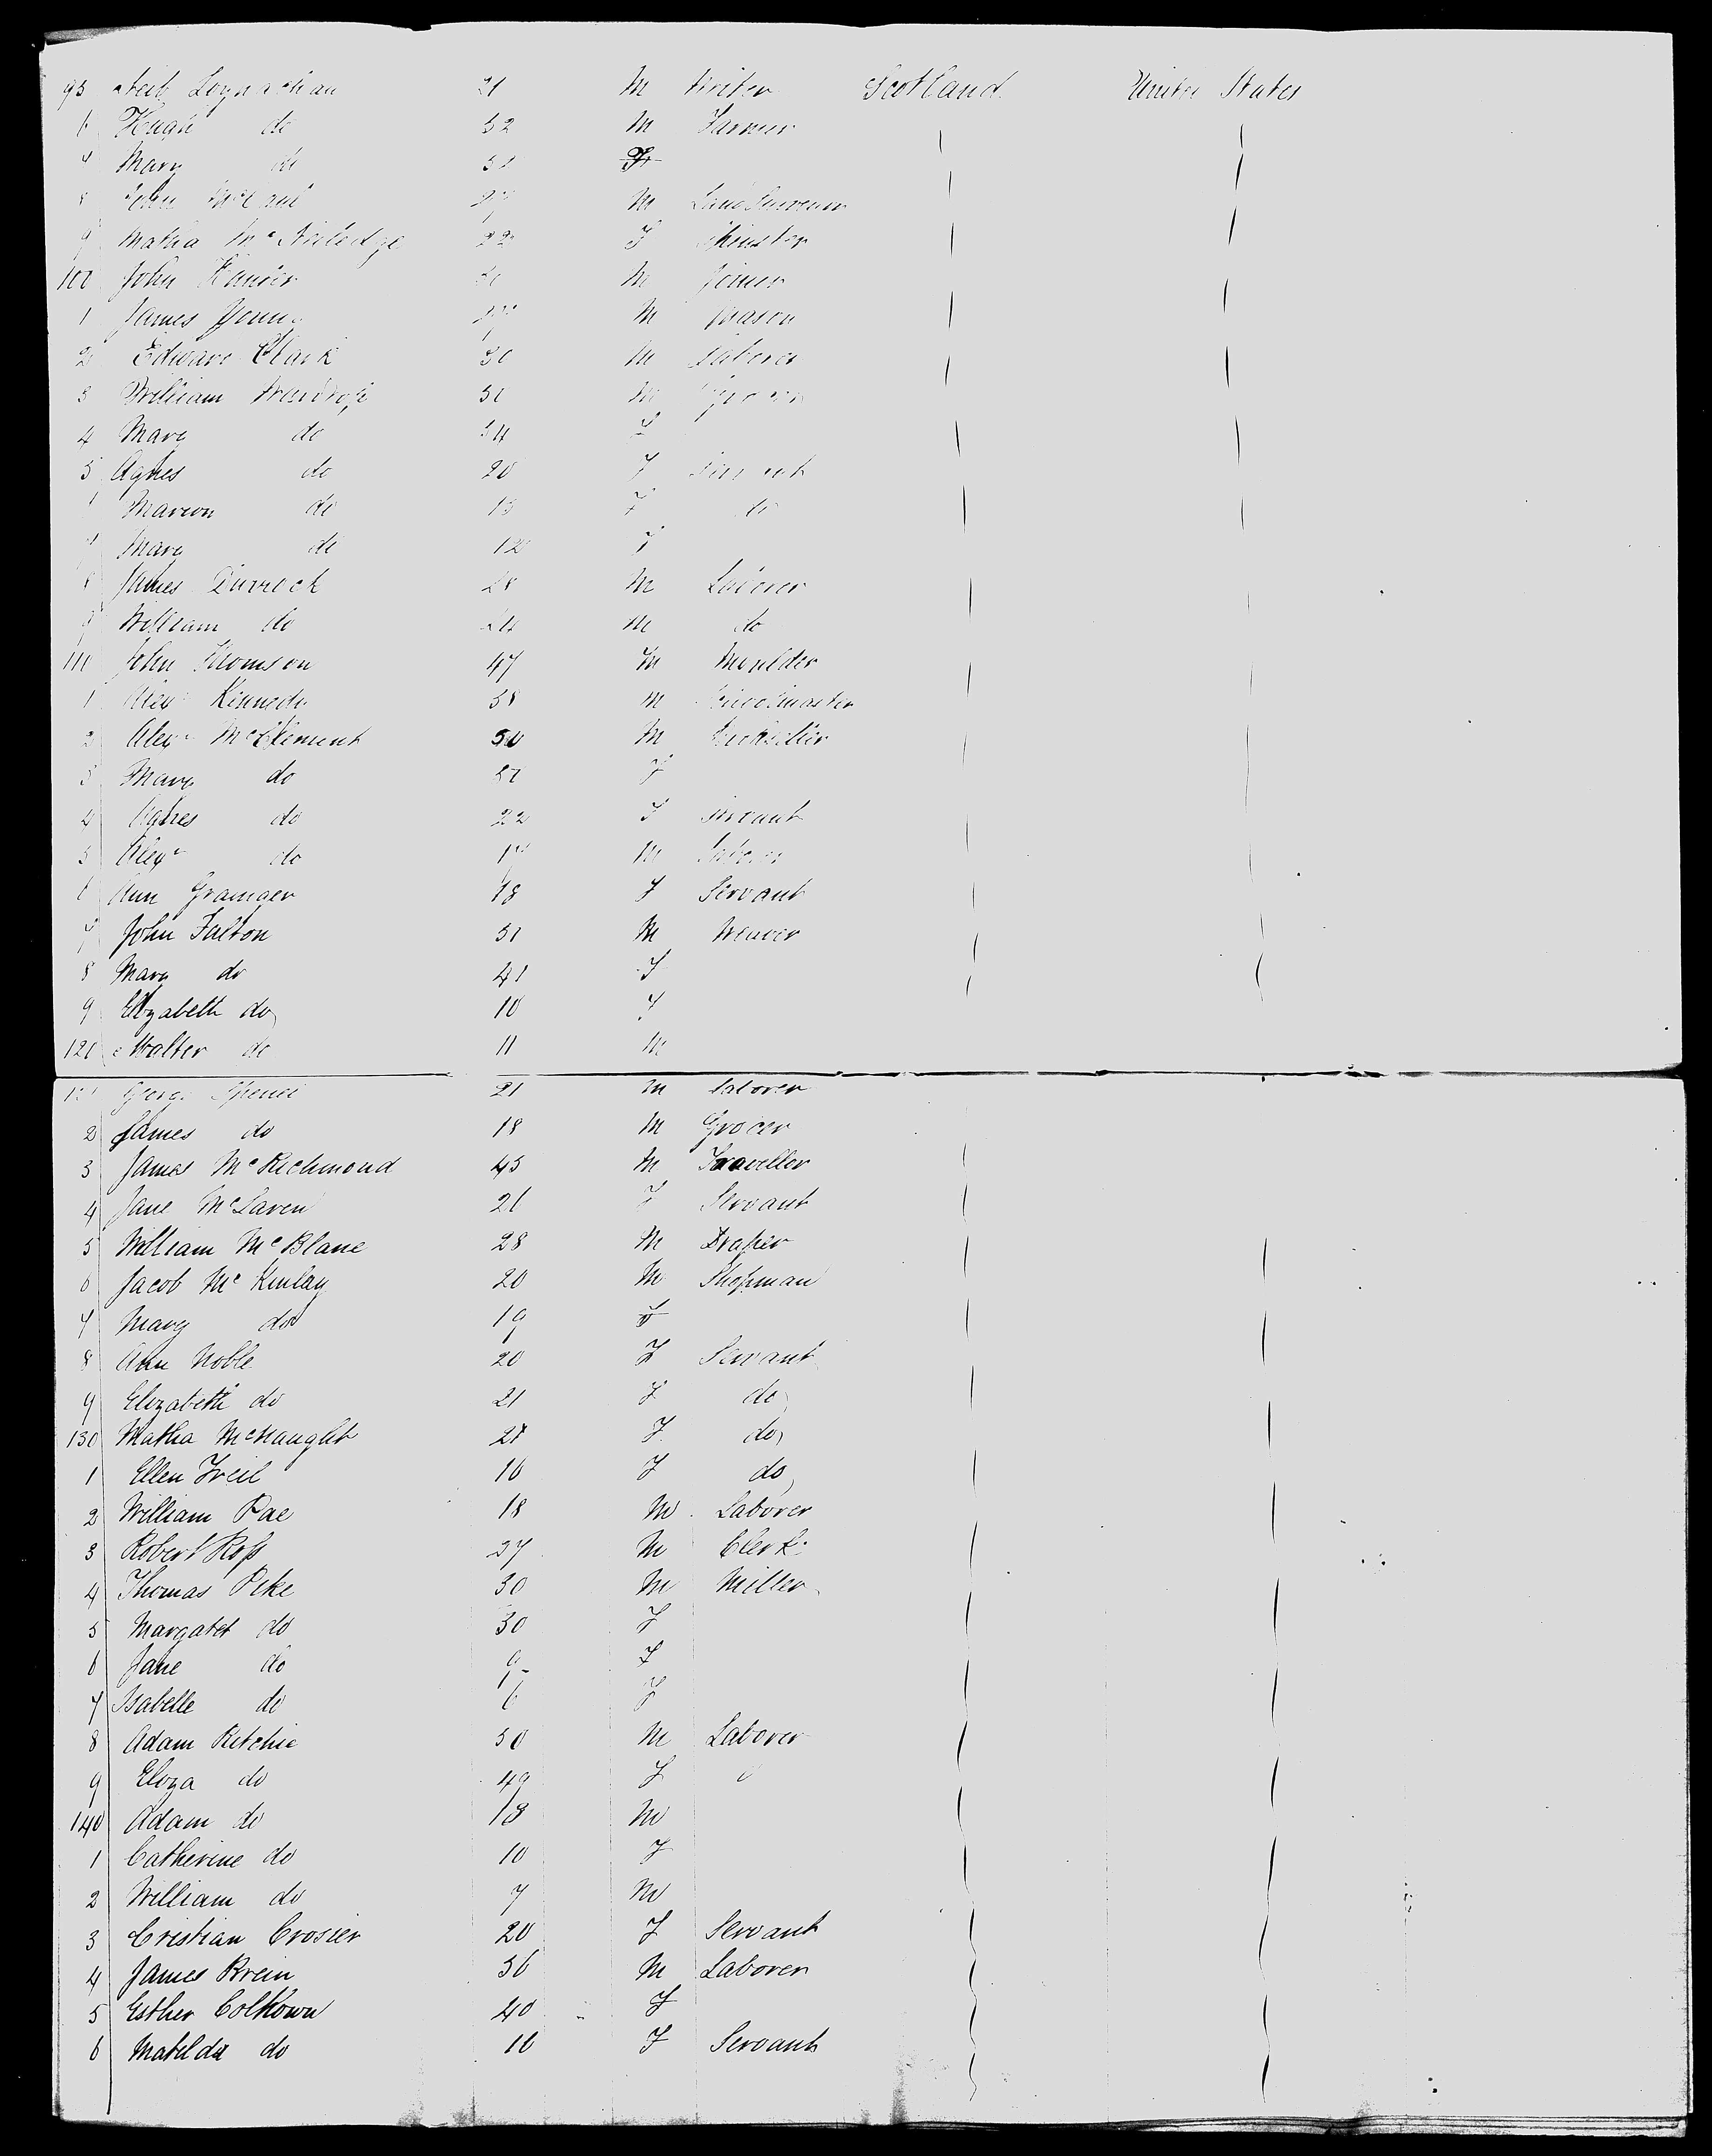 95 Neil Loynachan 21 M Writer Scotland United States
6 Hugh do 32 M Farmer
7 Mary do 31 F
8 John 27 M Land Surveor
9 Matha Mc F
100 John M Joiner
1 James Young 27 M Mason
2 Edward Clark 30 M Laborer
3 William Wardrop M
4 Mary do 34 F
5 Agnes do 20 F Servant
Marion do 13 F do
7 Mary do 12 F
8 James Currock 28 M Laborer
9 William do 24 M do
110 John Thomson 47 M Moulder
1 Alexr Kennedy 38 M Schoolmaster
2 Alexr McClement 50 M
3 Mary do F
4 Agnes do 22 F Servant
5 Alexr do 17 M Laborer
6 Ann Grainger 18 F Servant
7 John Falton 51 M Weaver
8 Mary do 41 F
9 Elizabeth do 10 F
120 Walter do 11 M
121 George Spence 21 M Laborer
2 James do 18 M Grocer
3 James McRichmond 45 M Traveller
4 Jane McLaren 26 F Servant
5 William McBlane 28 M Draper
6 Jacob McKinlay 20 M Shopman
7 Mary do 19 F
8 Ann Noble 20 F Servant
9 Elizabeth do 21 F do
130 Matha McNaught F do
1 Ellen Freil 16 F do
2 William Rae 18 M Laborer
3 Robert Ross 27 M Clerk
4 Thomas Peke 30 M Miller
5 Margaret do 30 F
6 Jane do 9 F
7 Isabelle do 6 F
8 Adam Ritchie 50 M Laborer
9 Eliza do 49 F
140 Adam do 18 M
1 Catherine do 10 F
2 William do 7 M
3 Cristian Crosier 20 F Servant
4 James Brein 36 M Laborer
5 Esther Colkown 40 F
6 Matilda do 16 F Servant